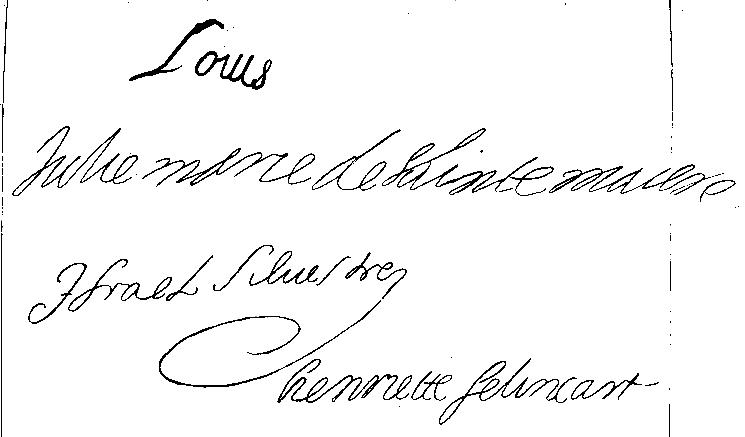 Louis
Julie marie de Sainte maure
Israel Siluestre
henriette Selincart